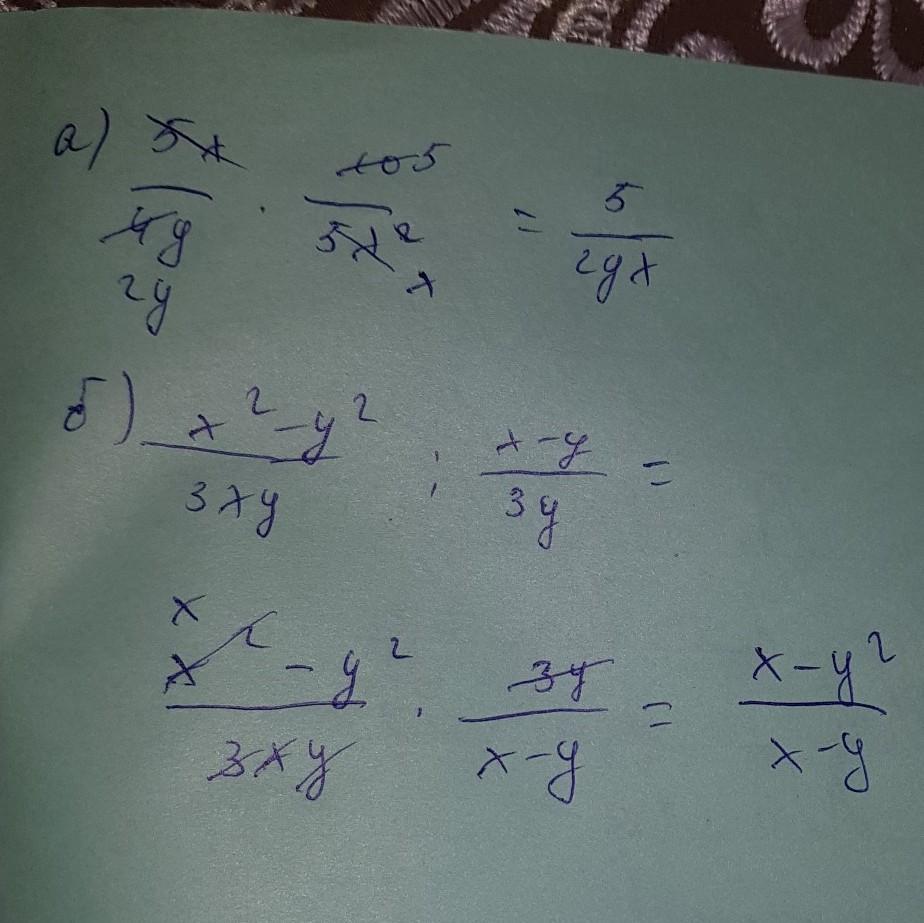 а) 5x/4y · 10/5x² = 5/2yx
5
2y
x
б) x² - y²/3xy : x - y/3y =
x
x² - y²/3xy · 3y/x - y = x - y²/x - y